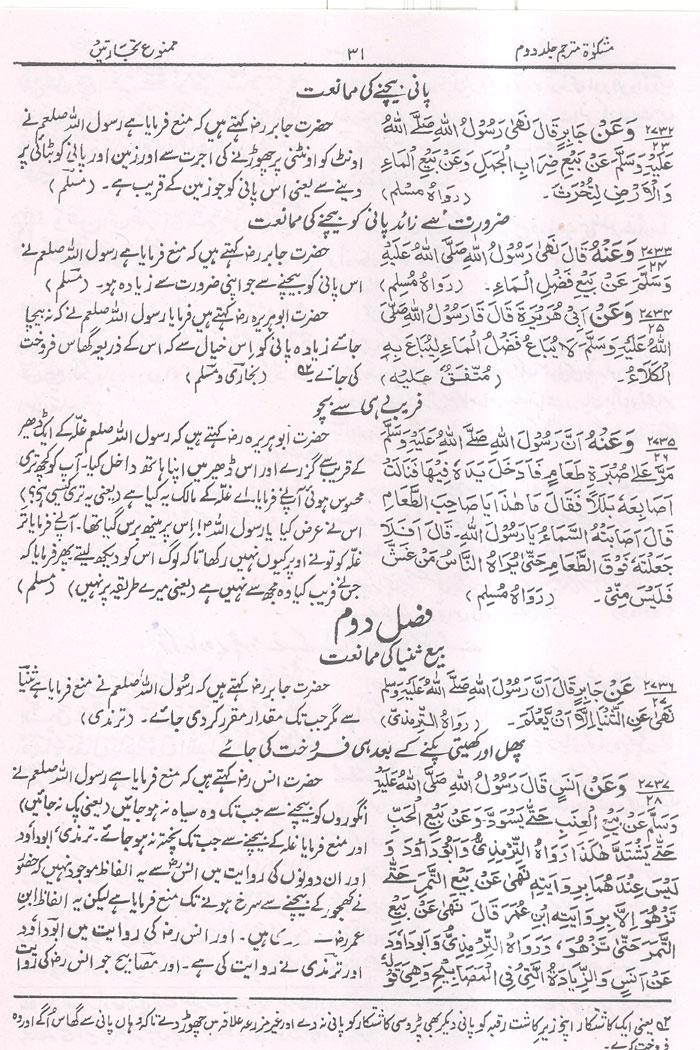 مشکوٰۃ مترجم جلد دوم
۳۱
ممنوع تجارتیں
پانی بیچنے کی ممانعت
۲۷۳۲
۲۳
وَعَنْ جَابِرٍ قَالَ نَهٰى رَسُوْلُ اللهِ صَلَّى اللهُ
عَلَيْهِ وَسَلَّمَ عَنْ بَيْعِ ضِرَابِ الْجَمَلِ وَعَنْ بَيْعِ الْمَاءِ
وَالْاَرْضِ لِتُحْرَثَ۔ (رَوَاهُ مُسْلِم)
حضرت جابر رضؓ کہتے ہیں کہ منع فرمایا ہے رسول اللہ صلعم نے
اونٹ کو اونٹنی پر چھوڑنے کی اجرت سے اور زمین اور پانی کو بٹائی پر
دینے سے یعنی اس پانی کو جو زمین کے قریب ہے۔ (مسلم)
ضرورت سے زائد پانی کو بیچنے کی ممانعت
۲۷۳۳
۲۴
وَعَنْهُ قَالَ نَهٰى رَسُوْلُ اللهِ صَلَّى اللهُ عَلَيْهِ
وَسَلَّمَ عَنْ بَيْعِ فَضْلِ الْمَاءِ۔ (رَوَاهُ مُسْلِم)
حضرت جابر رضؓ کہتے ہیں کہ منع فرمایا ہے رسول اللہ صلعم نے
اس پانی کو بیچنے سے جو اپنی ضرورت سے زیادہ ہو۔ (مسلم)
۲۷۳۴
۲۵
وَعَنْ اَبِىْ هُرَيْرَةَ قَالَ قَالَ رَسُوْلُ اللهِ صَلَّى
اللهُ عَلَيْهِ وَسَلَّمَ لَا يُبَاعُ فَضْلُ الْمَاءِ لِيُبَاعَ بِهِ
الْكَلَاءُ۔ (مُتَّفَقٌ عَلَيْهِ)
حضرت ابوہریرہ رضؓ کہتے ہیں فرمایا رسول اللہ صلعم نے کہ نہ بیچا
جائے زیادہ پانی کو اس خیال سے کہ اس کے ذریعہ گھاس فروخت
کی جائے (بخاری و مسلم)
فریب دہی سے بچو
۲۷۳۵
۲۶
وَعَنْهُ اَنَّ رَسُوْلَ اللهِ صَلَّى اللهُ عَلَيْهِ وَسَلَّمَ
مَرَّ عَلٰى صُبْرَةِ طَعَامٍ فَاَدْخَلَ يَدَهٗ فِيْهَا فَنَالَتْ
اَصَابِعُهٗ بَلَلًا فَقَالَ مَا هٰذَا يَا صَاحِبَ الطَّعَامِ
قَالَ اَصَابَتْهُ السَّمَاءُ يَا رَسُوْلَ اللهِ۔ قَالَ اَفَلَا
جَعَلْتَهٗ فَوْقَ الطَّعَامِ حَتّٰى يَرَاهُ النَّاسُ مَنْ غَشَّ
فَلَيْسَ مِنِّىْ۔ (رَوَاهُ مُسْلِم)
حضرت ابوہریرہ رضؓ کہتے ہیں کہ رسول اللہ صلعم غلّہ کے ایک ڈھیر
کے قریب سے گزرے اور اس ڈھیر میں اپنا ہاتھ داخل کیا۔ آپ کو کچھ تری
محسوس ہوئی آپ نے فرمایا۔ اے غلّہ کے مالک یہ کیا ہے (یعنی یہ تری کیسی ہے؟)
اس نے عرض کیا یا رسول اللہ ﷺ اس پر مینھ برس گیا تھا۔ آپ نے فرمایا تر
غلّہ کو تو نے اوپر کیوں نہیں رکھا تاکہ لوگ اس کو دیکھ لیتے پھر فرمایا کہ
جس نے فریب کیا وہ مجھ سے نہیں ہے (یعنی میرے طریقہ پر نہیں) (مسلم)
فصل دوم
بیع ثنیا کی ممانعت
۲۷۳۶
۲۷
عَنْ جَابِرٍ قَالَ اَنَّ رَسُوْلَ اللهِ صَلَّى اللهُ عَلَيْهِ وَسَلَّمَ
نَهٰى عَنِ الثُّنْيَا اِلَّا اَنْ يُعْلَمَ۔ (رَوَاهُ التِّرْمِذِىُّ)
حضرت جابر رضؓ کہتے ہیں کہ رسول اللہ صلعم نے منع فرمایا ہے ثنیا
سے مگر جب تک مقدار مقرر کر دی جائے۔ (ترمذی)
پھل اور کھیتی پکنے کے بعد ہی فروخت کی جائے
۲۷۳۷
۲۸
وَعَنْ اَنَسٍ قَالَ رَسُوْلُ اللهِ صَلَّى اللهُ عَلَيْهِ
وَسَلَّمَ عَنْ بَيْعِ الْعِنَبِ حَتّٰى يَسْوَدَّ وَعَنْ بَيْعِ الْحَبِّ
حَتّٰى يَشْتَدَّ هٰكَذَا رَوَاهُ التِّرْمِذِىُّ وَاَبُوْدَاؤدَ وَ
لَيْسَ عِنْدَهُمَا بِرِوَايَتِهٖ نَهٰى عَنْ بَيْعِ التَّمَرِ حَتّٰى
تَزْهُوَ اِلَّا بِرِوَايَتِهٖ ابْنِ عُمَرَ قَالَ نَهٰى عَنْ بَيْعِ
التَّمَرِ حَتّٰى تَزْهُوَ، وَرَوَاهُ التِّرْمِذِىُّ وَاَبُوْدَاؤدَ
عَنْ اَنَسٍ وَالزِّيَادَةُ الَّتِىْ فِى الْمَصَابِيْحِ وَهِىَ قَوْ
حضرت انس رضؓ کہتے ہیں کہ منع فرمایا ہے رسول اللہ صلعم نے
انگوروں کو بیچنے سے جب تک وہ سیاہ نہ ہو جائیں (یعنی پک نہ جائیں)
اور منع فرمایا غلّہ کے بیچنے سے جب تک پختہ نہ ہو جائے۔ ترمذی، ابوداؤد
اور ان دونوں کی روایت میں انسؓ سے یہ الفاظ موجود نہیں کہ حضورؐ
نے کھجور کے بیچنے سے سرخ ہونے تک منع فرمایا ہے لیکن یہ الفاظ ابن
عمر رضؓ ہیں۔ اور انس رضؓ کی روایت میں ابوداؤد
اور ترمذی نے روایت کی ہے۔ اور مصابیح جو انس رضؓ کی روایت
یعنی ایک کاشتکار اپنے زیر کاشت رقبہ کو پانی دیکر بھی پڑوسی کاشتکار کو پانی نہ دے اور غیر مزروعہ علاقہ میں چھوڑ دے تاکہ وہاں پانی سے گھاس اُگے اور وہ
فروخت کرے۔